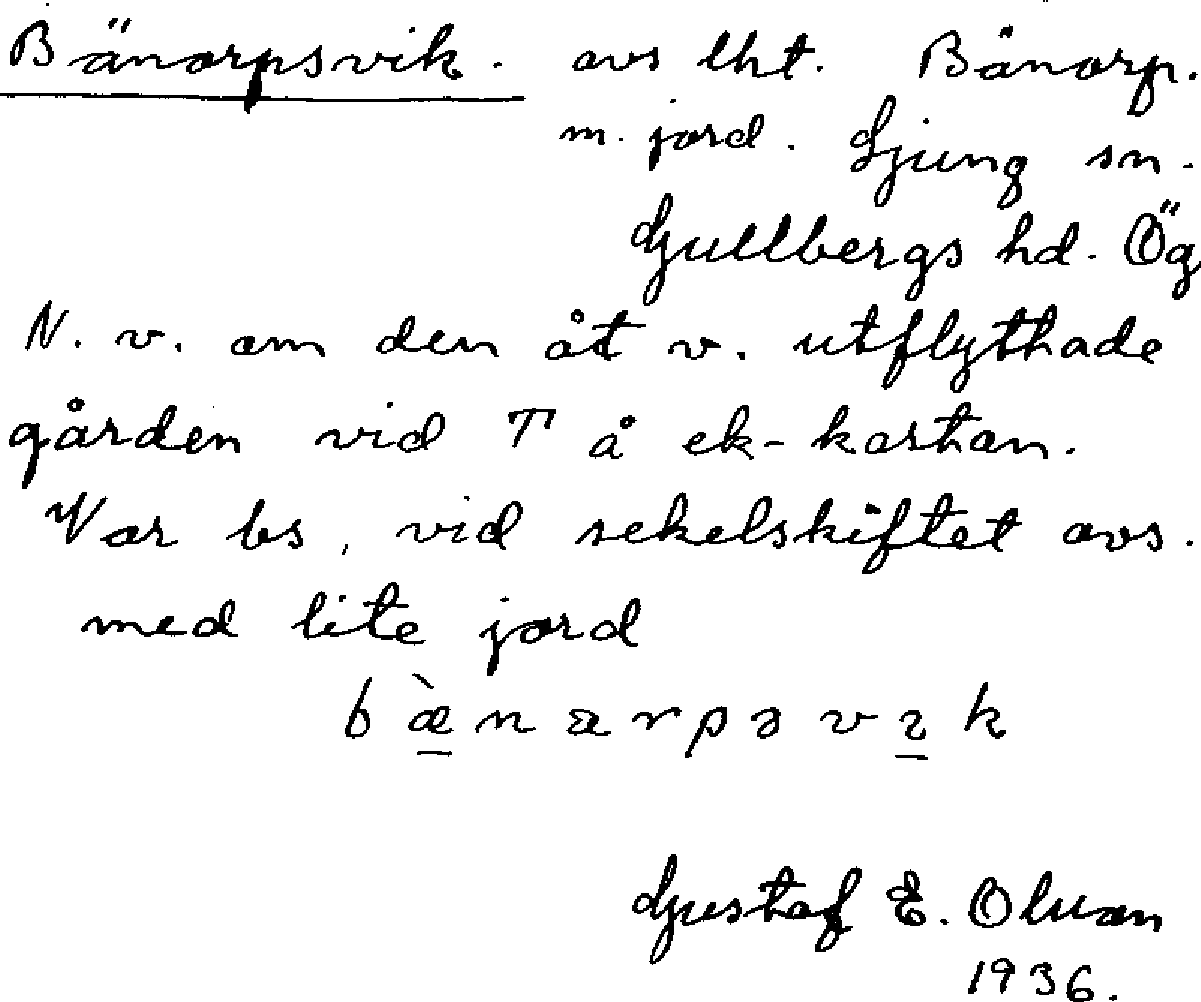 Bänarpsvik. avs lht. Bänarp.
m. jord. Ljung sn.
Gullbergs hd. Ög
N. v. om den åt v. utflyttade
gården vid T å ek-kartan.
Var bs, vid sekelskiftet avs.
med lite jord
bæ̀narpsvik
Gustaf E. Olsson
1936.